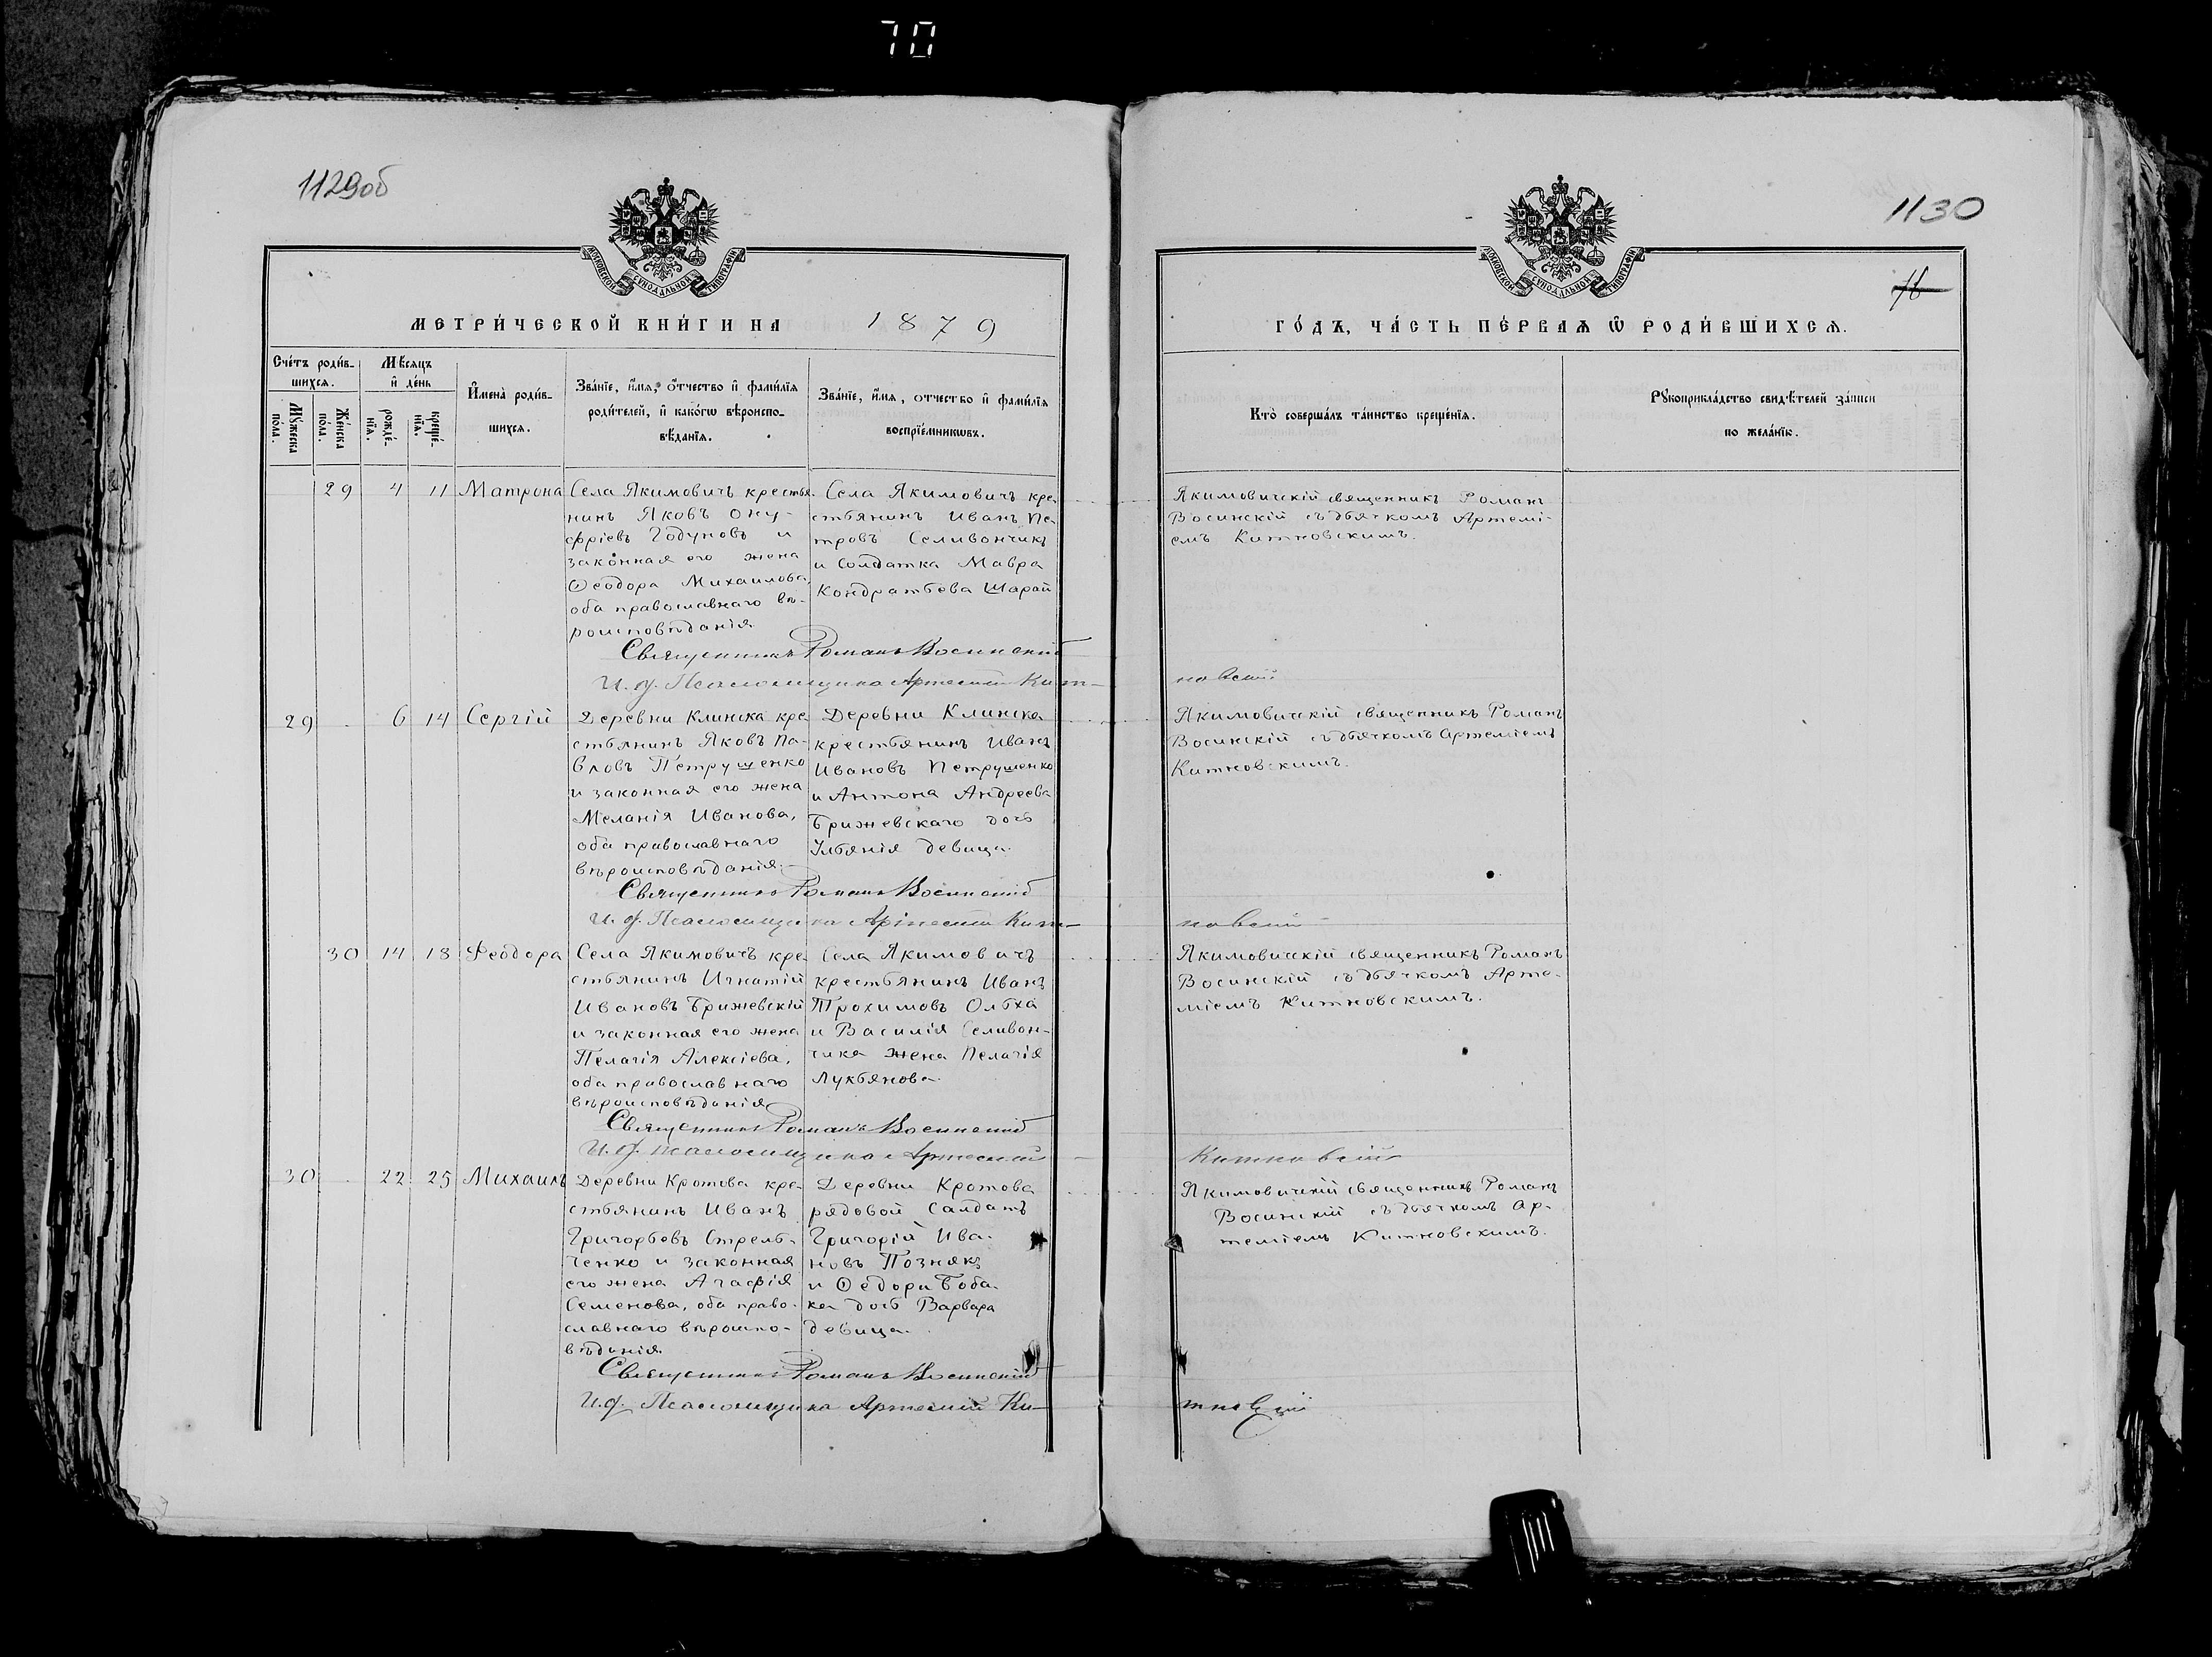 70
1129об
1130
МОСКОВСКОЙ СѴНОДАЛЬНОЙ ТИПОГРАФІИ
МОСКОВСКОЙ СѴНОДАЛЬНОЙ ТИПОГРАФІИ
МЕТРИ́ЧЕСКОЙ КНИ́ГИ НА 1879
ГО́ДЪ, ЧА́СТЬ ПЕ́РВАѦ Ѿ РОДИ́ВШИХСѦ.
Сче́тъ роди́в-
шихсѧ.
Мѣ́сѧцъ
и҆ де́нь
Мꙋ́жеска
по́ла.
Же́нска
по́ла.
рожде́-
нїѧ.
креще́-
нїѧ.
И҆мена̀ роди́в-
шихсѧ.
Зва́нїе, и҆́мѧ, ѻ҆́тчество и҆ фами́лїѧ
роди́телей, и҆ како́гѡ вѣроиспо-
вѣ́данїѧ.
Зва́нїе, и҆́мѧ, отчество и҆ фами́лїѧ
воспрїе́мникѡвъ.
Кто̀ соверша́лъ та́инство креще́нїѧ.
Рꙋкоприкла́дство свидѣ́телей за́писи
по жела́нїю.
29 4 11 Матрона
Села Якимовичъ крестья-
нинъ Яковъ Ону-
фріевъ Годуновъ и
законная его жена
Ѳеодора Михаилова,
оба православнаго вѣ-
роисповѣданія
Села Якимовичъ кре-
стьянинъ Иванъ Пе-
тровъ Селивончикъ
и Солдатка Мавра
Кондратьева Шарай
Якимовичскій священникъ Романъ
Восинскій съ дьячкомъ Артемі-
емъ Китновскимъ.
Священникъ Романъ Восинскій
И. д. Псаломщика Артемій Кит-
новскій
29 6 14 Сергій
Деревни Клинска кре-
стьянинъ Яковъ Па-
вловъ Петрушенко
и законная его жена
Меланія Иванова,
оба православнаго
вѣроисповѣданія.
Деревни Клинска
крестьянинъ Иванъ
Ивановъ Петрушенко
и Антона Андреева
Брижевскаго дочь
Ульянія девица.
Якимовичскій священникъ Романъ
Восинскій съ дьячкомъ Артеміемъ
Китновскимъ.
Священникъ Романъ Восинскій
И. д. Псаломщика Артемій Кит-
новскій
30 14 18 Феодора
Села Якимовичъ кре-
стьянинъ Игнатій
Ивановъ Брижевскій
и законная его жена
Пелагія Алексіева,
оба православнаго
вѣроисповѣданія
Села Якимовичъ
крестьянинъ Иванъ
Трохимовъ Ольха
и Василія Селивон-
чика жена Пелагія
Лукьянова.
Якимовичскій священникъ Романъ
Восинскій съ дьячкомъ Арте-
міемъ Китновскимъ.
Священникъ Романъ Восинскій
И. д. Псаломщика Артемій
Китновскій
30 22 25 Михаилъ
Деревни Кротова кре-
стьянинъ Иванъ
Григорьевъ Стрель-
ченко и законная
его жена Агафія
Семенова, оба право-
славнаго вѣроиспо-
вѣданія.
Деревни Кротова
рядовой Салдатъ
Григорій Ива-
новъ Познякъ
и Ѳедори Боба-
ка дочь Варвара
девица.
Якимовичскій священникъ Романъ
Восинскій съ дьячкомъ Ар-
теміемъ Китновскимъ.
Священникъ Романъ Восинскій
И. д. Псаломщика Артемій Ки-
тновскій